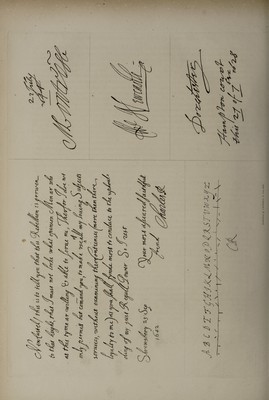 Newcastell this is to tell you that this Rebellion is growen
to that height, that I must not looke what opinion Men ar who
at this tyme ar willing & able to serve me. Therfor I doe not
only permit but comand you, to make use of all my loving Subjects
services, without examining ther Contienses (more than there
loyalty to us) as you shall fynde most to conduce to the uphold=
ing of my just Regall Power. So I rest
Your most asseured faithfull
frend
Charles R
Shrewsbury 23 Sep.
1642
A B C D E F G H I K L M N O P Q R S T U W X Y Z
CR
22 July
Newcastle
Dorchester
Hampton court
this 27 of 7 1628